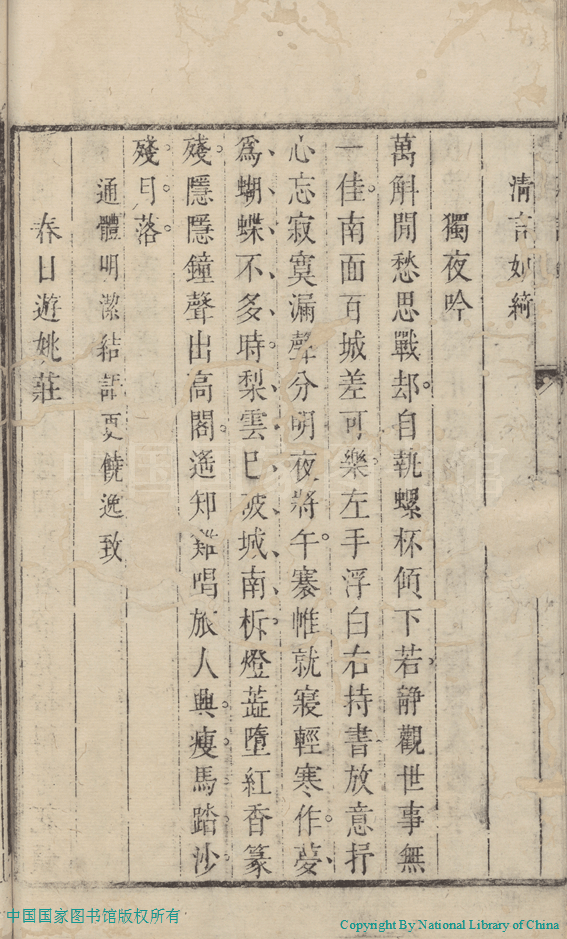 清言妙綺
獨夜吟
萬斛閒愁思戰却自執螺杯傾下若靜觀世事無
一佳南面百城差可樂左手浮白右持書放意抒
心忘寂寞漏聲分明夜將午褰帷就寢輕寒作夢
爲蝴蝶不多時梨雲已破城南柝燈蕋墮紅香篆
殘隱隱鐘聲出高閣遥知雞唱旅人興瘦馬踏沙
殘月落
通體明潔結語更饒逸致
春日遊姚莊
中国国家图书馆版权所有
Copyright By National Library of China